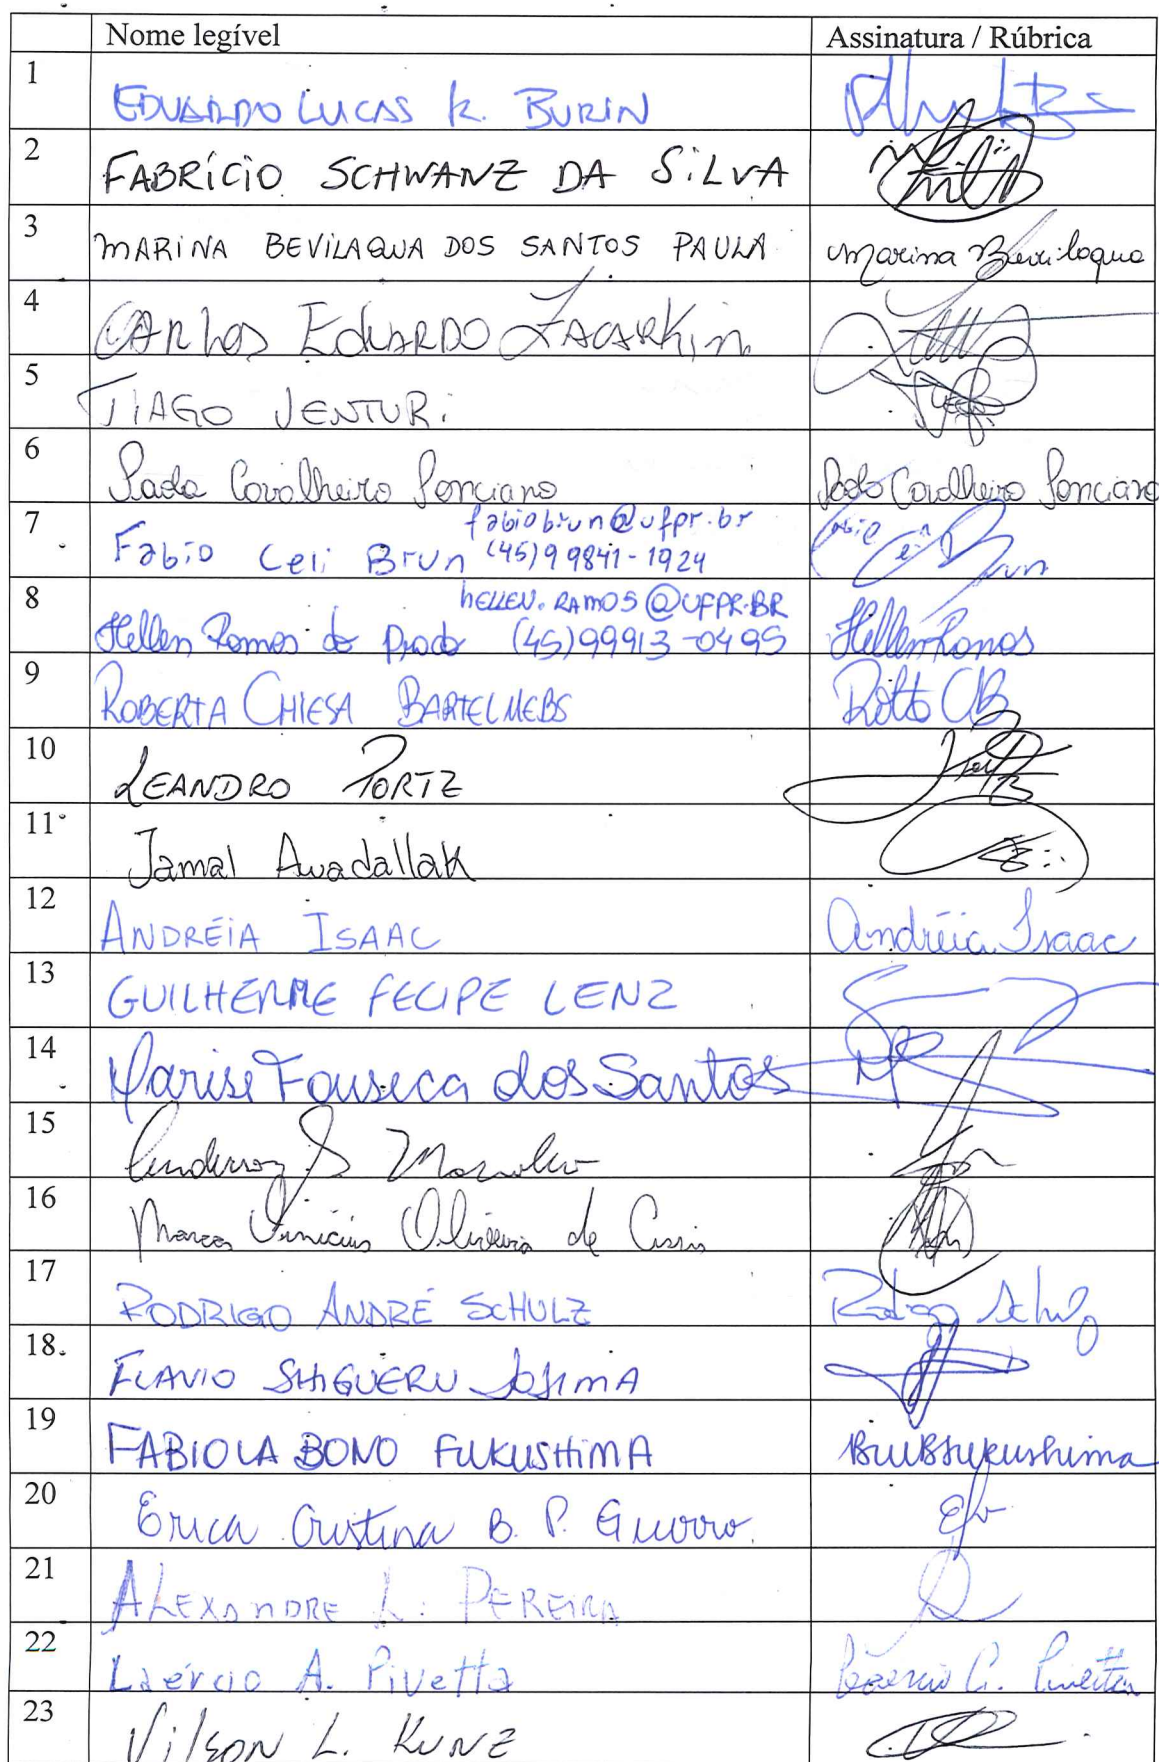 Nome legível Assinatura / Rúbrica
1 EDUARDO LUCAS K. BURIN
2 FABRÍCIO SCHWANZ DA SILVA
3 MARINA BEVILAQUA DOS SANTOS PAULA Marina Bevilaqua
4 CARLOS EDUARDO ZACARKIM
5 TIAGO VENTURI
6 Paola Cavalheiro Ponciano Paola Cavalheiro Ponciano
fabiobrun@ufpr.br
7 Fabio Celi Brun (45)99841-1924 Fabio Celi Brun
HELLEN.RAMOS@UFPR.BR
8 Hellen Ramos do Prado (45)99913-0495 Hellen Ramos
9 ROBERTA CHIESA BARTELMEBS
10 LEANDRO PORTZ
11 Jamal Awadallak
12 ANDRÉIA ISAAC Andréia Isaac
13 GUILHERME FELIPE LENZ
14 Marise Fonseca dos Santos
15 Anderson
16 Marcos Vinicius Oliveira de Assis
17 RODRIGO ANDRÉ SCHULZ Rodrigo Schulz
18 FLAVIO SHIGUERU JOJIMA
19 FABIOLA BONO FUKUSHIMA
20 Erica Cristina B. P. Guirro
21 ALEXANDRE L. PEREIRA
22 Laércio A. Pivetta Laércio A. Pivetta
23 Vilson L. KUNZ